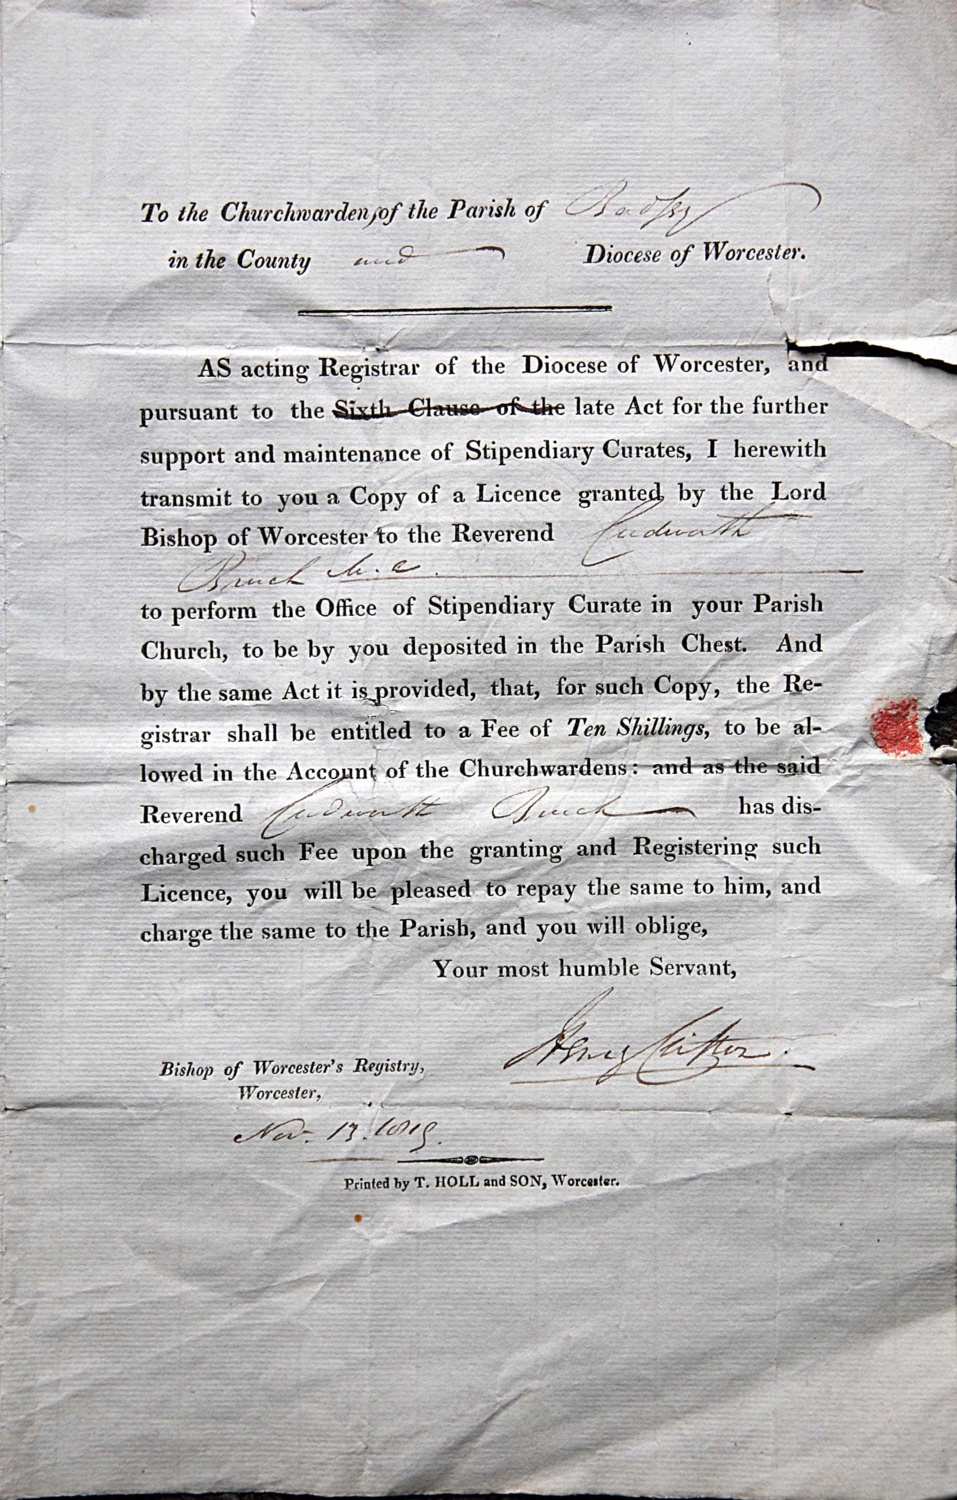 To the Churchwarden, of the Parish of Badsey
in the County and Diocese of Worcester.
AS acting Registrar of the Diocese of Worcester, and
pursuant to the Sixth Clause of the late Act for the further
support and maintenance of Stipendiary Curates, I herewith
transmit to you a Copy of a Licence granted by the Lord
Bishop of Worcester to the Reverend Cudworth
Bruch
to perform the Office of Stipendiary Curate in your Parish
Church, to be by you deposited in the Parish Chest. And
by the same Act it is provided, that, for such Copy, the Re-
gistrar shall be entitled to a Fee of Ten Shillings, to be al-
lowed in the Account of the Churchwardens: and as the said
Reverend Cudworth Bruch has dis-
charged such Fee upon the granting and Registering such
Licence, you will be pleased to repay the same to him, and
charge the same to the Parish, and you will oblige,
Your most humble Servant,
Henry Clifton.
Bishop of Worcester's Registry,
Worcester,
Nov. 13. 1819.
Printed by T. HOLL and SON, Worcester.